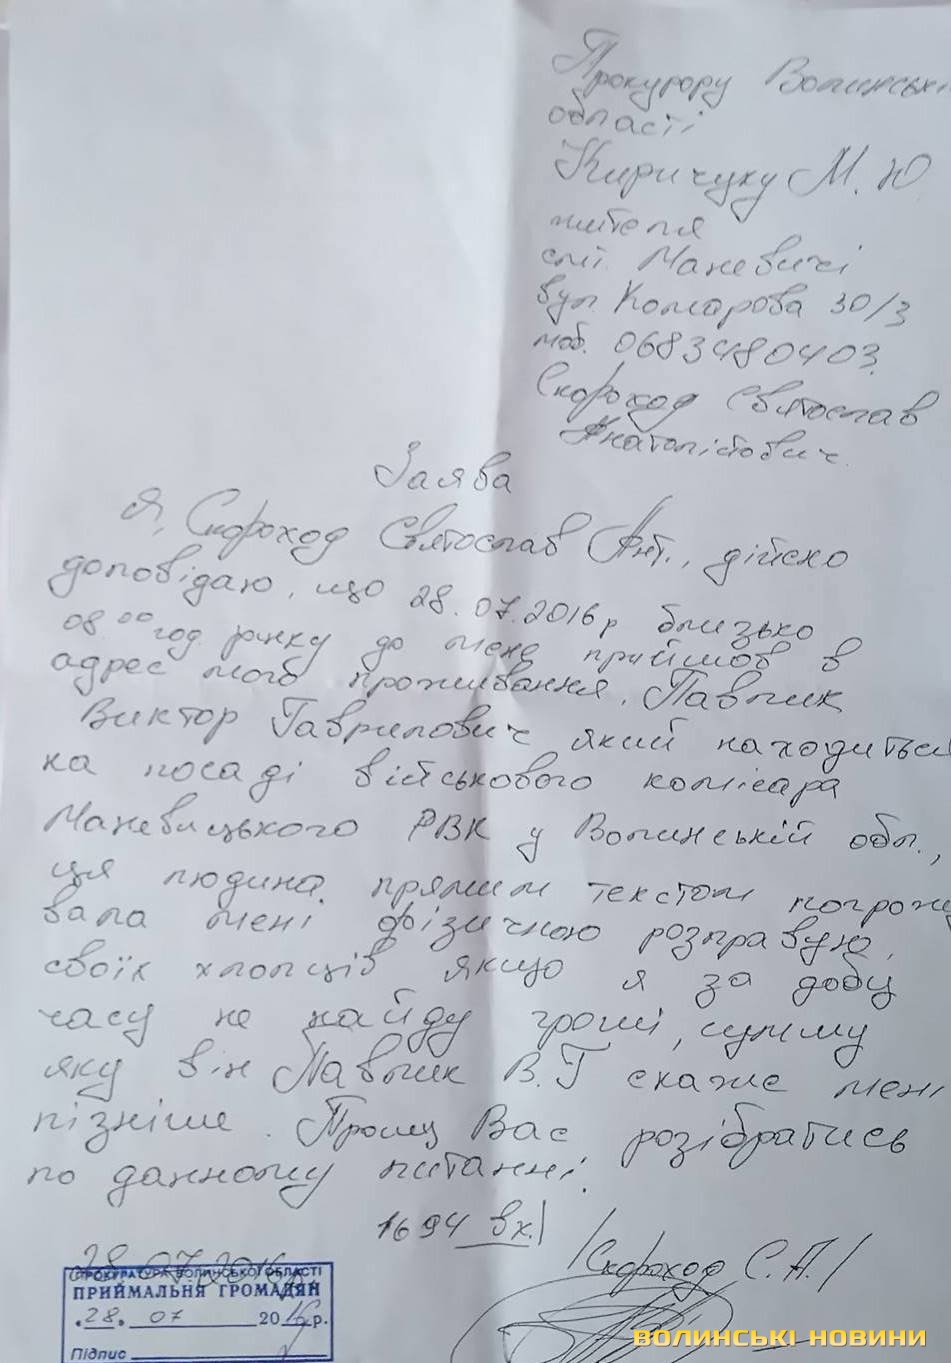 Прокурору Волинські
області
Киричуку М.Ю
жителя
смт. Маневичі
вул. Комарова 30/3
моб. 0683480403.
Скороход Святослав
Анатолійович.
Заява
Я, Скороход Святослав Ант., дійсно
доповідаю, що 28.07.2016р близько
08.00 год. ранку до мене прийшов в
адрес мого проживання, Павлик
Виктор Гаврилович який находиться
на посаді військового комісара
Маневицького РВК у Волинській обл.,
ця людина прямим текстом погрожу
вала мені фізичною розправую,
своїх хлопців якщо я за добу
часу не найду гроші, сумму
яку він Павлик В.Г скаже мені
пізніше. Прошу Вас розібратись
по данному питанні.
1694 вх./
/Скороход С.А./
28.07.2016р.
ПРОКУРАТУРА ВОЛИНСЬКОЇ ОБЛАСТІ
ПРИЙМАЛЬНЯ ГРОМАДЯН
28. 07 2016р.
Підпис
ВОЛИНСЬКІ НОВИНИ